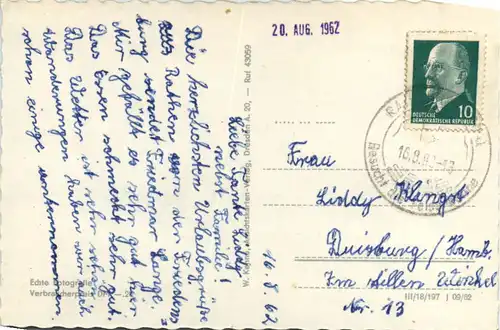 20. AUG. 1962
Liebe Tante Liddy
nebst Familie!
Die herzlichsten Urlaubsgrüße
aus Rathen von der Friedens
burg sendet Friedmar Lange.
Mir gefällt es sehr gut hier
Das Essen schmeckt sehr gut
Das Wetter ist sehr schön
Wanderungen haben wir auch
schon einige unternommen.
16.8.62
Echte Fotografie
Verbraucherpreis DM —,20
Verlag, Dresden A. 20, — Ruf 43059
DEUTSCHE
DEMOKRATISCHE REPUBLIK
10
16.8.
Frau
Liddy Klinger
Duisburg / Hamb.
Am stillen Winkel
Nr. 13
III/18/197 | 09/62